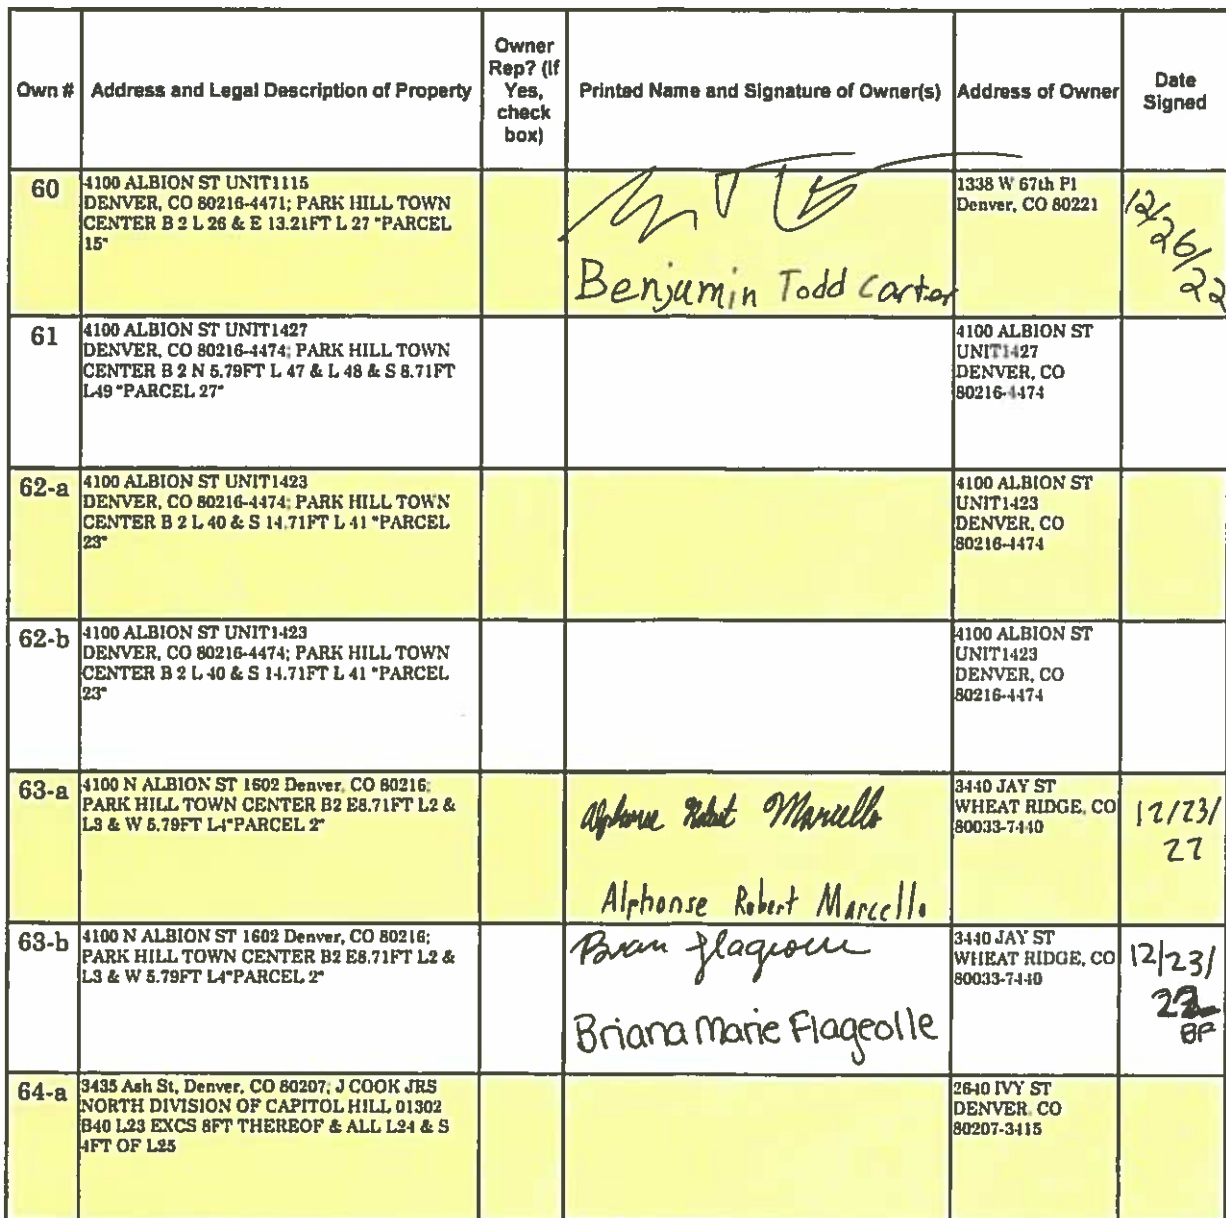 Own #
Address and Legal Description of Property
Owner
Rep? (If
Yes,
check
box)
Printed Name and Signature of Owner(s)
Address of Owner
Date
Signed
60
4100 ALBION ST UNIT1115
DENVER, CO 80216-4471; PARK HILL TOWN
CENTER B 2 L 26 & E 13.21FT L 27 "PARCEL
15"
Benjamin Todd Carter
1338 W 67th Pl
Denver, CO 80221
12/26/22
61
4100 ALBION ST UNIT1427
DENVER, CO 80216-4474; PARK HILL TOWN
CENTER B 2 N 5.79FT L 47 & L 48 & S 8.71FT
L49 "PARCEL 27"
4100 ALBION ST
UNIT1427
DENVER, CO
80216-4474
62-a
4100 ALBION ST UNIT1423
DENVER, CO 80216-4474; PARK HILL TOWN
CENTER B 2 L 40 & S 14.71FT L 41 "PARCEL
23"
4100 ALBION ST
UNIT1423
DENVER, CO
80216-4474
62-b
4100 ALBION ST UNIT1423
DENVER, CO 80216-4474; PARK HILL TOWN
CENTER B 2 L 40 & S 14.71FT L 41 "PARCEL
23"
4100 ALBION ST
UNIT1423
DENVER, CO
80216-4474
63-a
4100 N ALBION ST 1602 Denver, CO 80216;
PARK HILL TOWN CENTER B2 E8.71FT L2 &
L3 & W 5.79FT L4"PARCEL 2"
Alphonse Robert Marcello
Alphonse Robert Marcello
3440 JAY ST
WHEAT RIDGE, CO
80033-7440
12/23/
22
63-b
4100 N ALBION ST 1602 Denver, CO 80216;
PARK HILL TOWN CENTER B2 E8.71FT L2 &
L3 & W 5.79FT L4"PARCEL 2"
Briana Marie Flageolle
3440 JAY ST
WHEAT RIDGE, CO
80033-7440
12/23/
22
BF
64-a
3435 Ash St, Denver, CO 80207; J COOK JRS
NORTH DIVISION OF CAPITOL HILL 01302
B40 L23 EXCS 8FT THEREOF & ALL L24 & S
4FT OF L25
2640 IVY ST
DENVER, CO
80207-3415